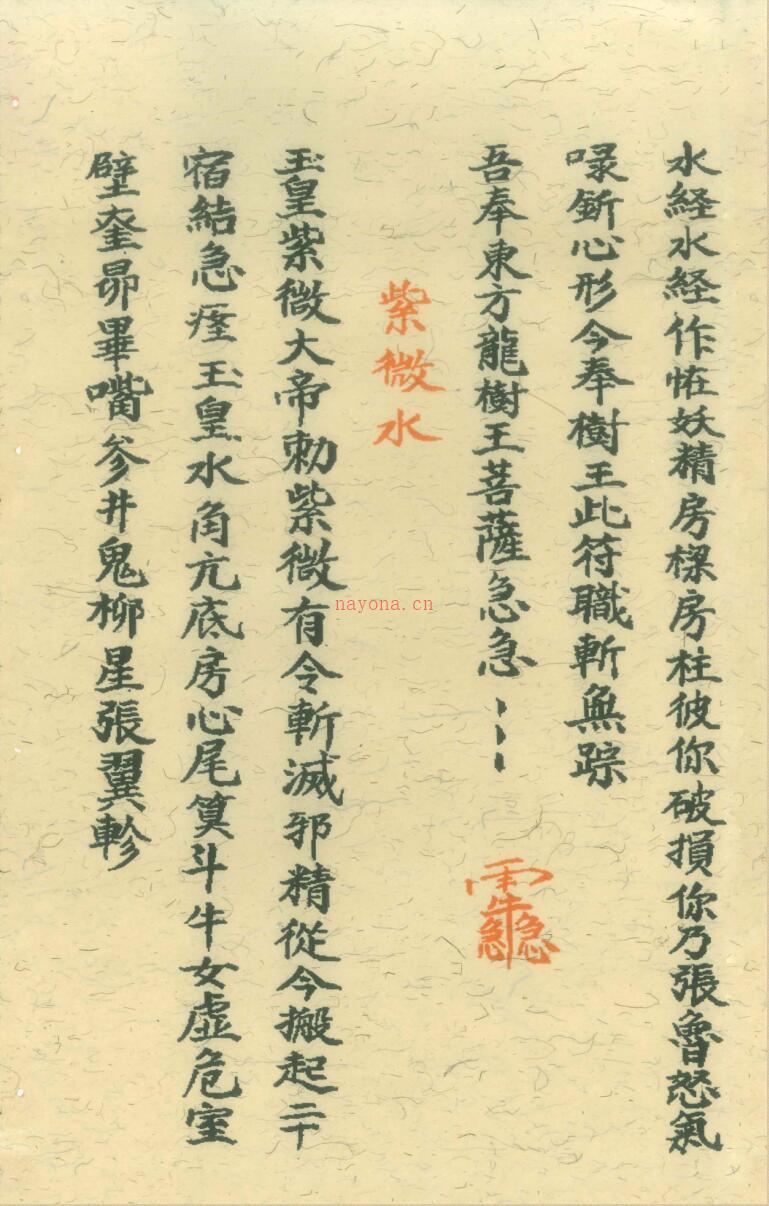 水経水経作恠妖精房樑房柱彼你破損你乃張魯怒氣
㖨釿心形今奉樹王此符職斬無踪
吾奉東方龍樹王菩薩急急ヽヽヽ
紫微水
玉皇紫微大帝勅紫微有令斬滅邪精從今搬起二十
宿結急痊玉皇水角亢底房心尾箕斗牛女虛危室
壁奎昴畢嘴参井鬼柳星張翼軫
nayona.cn